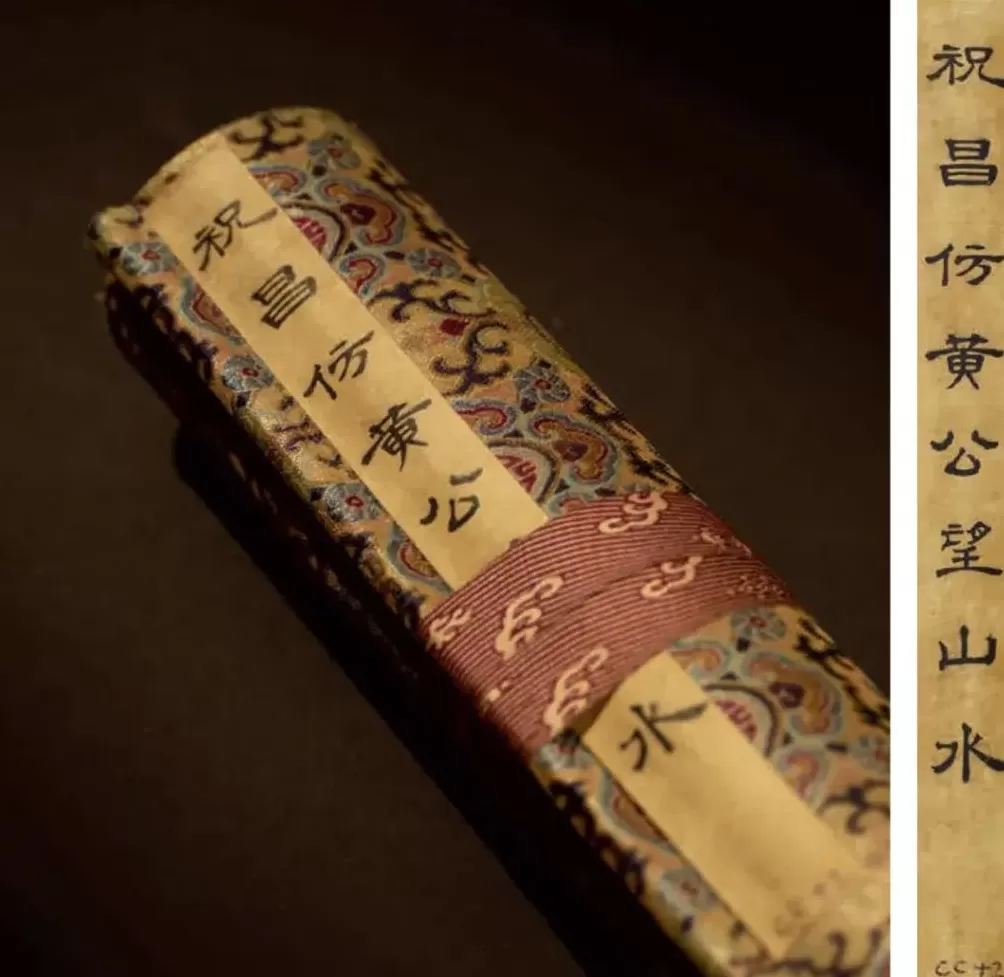 祝昌仿黄公
水
祝昌仿黄公望山水